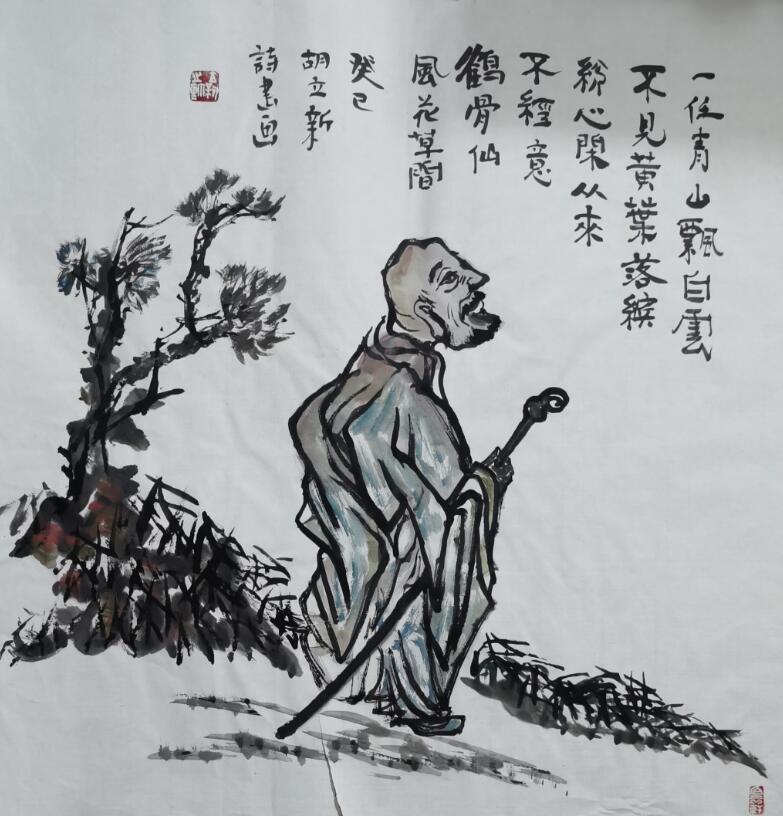 一任青山飄白雲
不見黃葉落繽
紛心閑从來
不經意
鶴骨仙
風花草間
癸巳
胡立新
詩書画